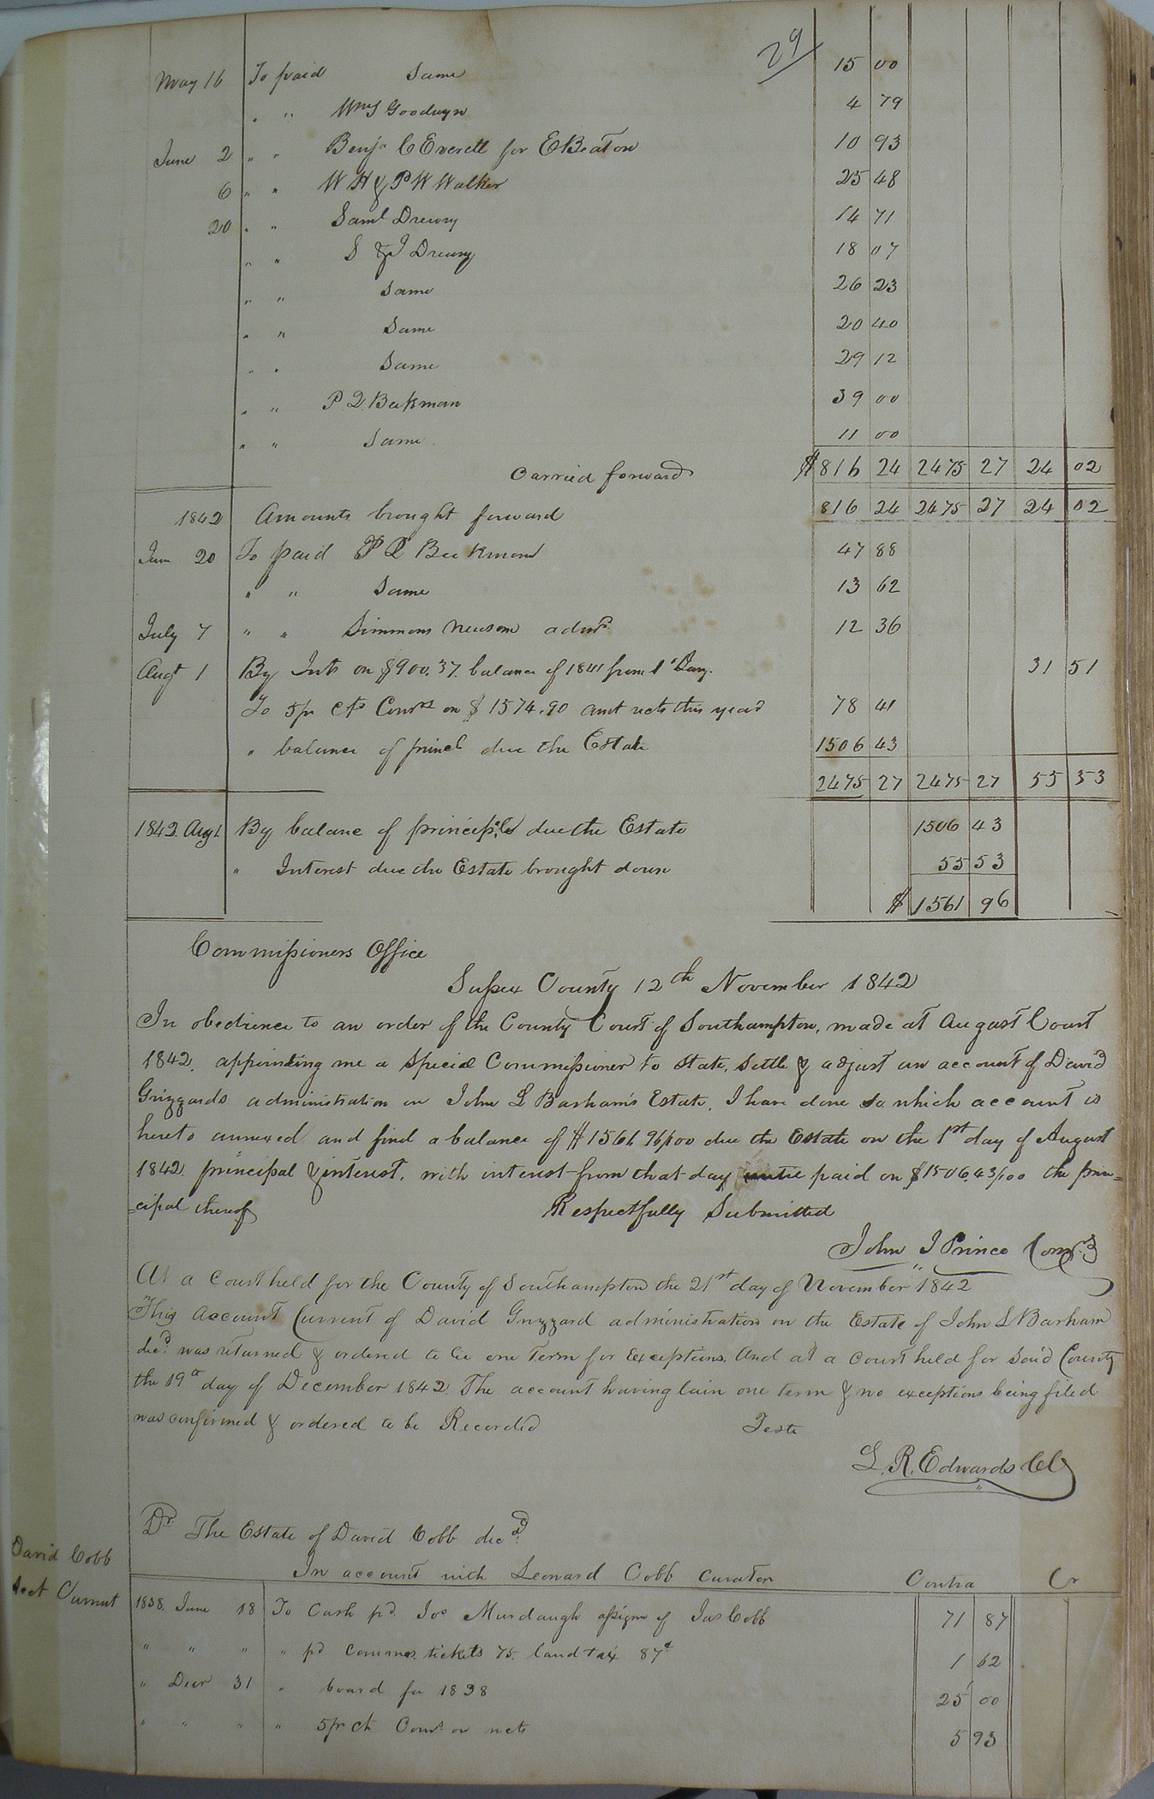 29
May 16 To paid Same 15 00
" " Wm S Goodwyn 4 79
June 2 " " Benja C Everett for E Beaton 10 93
6 " " W H & P W Walker 25 48
20 " " Saml Drewry 14 71
" " S & J Drewry 18 07
" " Same 26 23
" " Same 20 40
" " Same 29 12
" " P D Beekman 39 00
" " Same 11 00
Carried forward $ 816 24 2475 27 24 02
1842 Amounts brought forward 816 24 2475 27 24 02
June 20 To paid P D Beekman 47 88
" " Same 13 62
July 7 " " Simmons Newsom admr. 12 36
Augt 1 By Ints on $900.37. balance of 1841 from 1st Jany. 31 51
To 5 pr Cts Comrs on $1574.90 amt rects this year 78 41
" balance of princl due the Estate 1506 43
2475 27 2475 27 55 53
1842 Aug 1. By balance of principle due the Estate 1506 43
" Interest due the Estate brought down 55 53
$ 1561 96
Commissioners Office
Sussex County 12th November 1842
In obedience to an order of the County Court of Southampton, made at August Court
1842. appointing me a special Commissioner to state, settle & adjust an account of David
Grizzards administration on John L Barham's Estate, I have done so which account is
hereto annexed and find a balance of $1561 96/100 due the Estate on the 1st day of August
1842 principal & interest, with interest from that day until paid on $1506.43/100 the prin=
=cipal thereof Respectfully Submitted
John J Prince Comr.
At a Court held for the County of Southampton the 21st day of November 1842
This Account Current of David Grizzard administration on the Estate of John L Barham
decd was returned & ordered to lie one Term for Exceptions. And at a Court held for said County
the 19th day of December 1842 The account having lain one term & no exceptions being filed
was confirmed & ordered to be Recorded Teste
L. R. Edwards Clk
David Cobb
Acct Current
Dr. The Estate of David Cobb decd
In account with Leonard Cobb Curator Contra Cr
1838. June 18 To Cash pd Jno Murdaugh assignee of Jas Cobb 71 87
" " " " pd Commrs tickets 75. land tax 87c 1 62
" Decr 31 " board for 1838 25 00
" " " " 5 pr ct Coms on rects 5 93